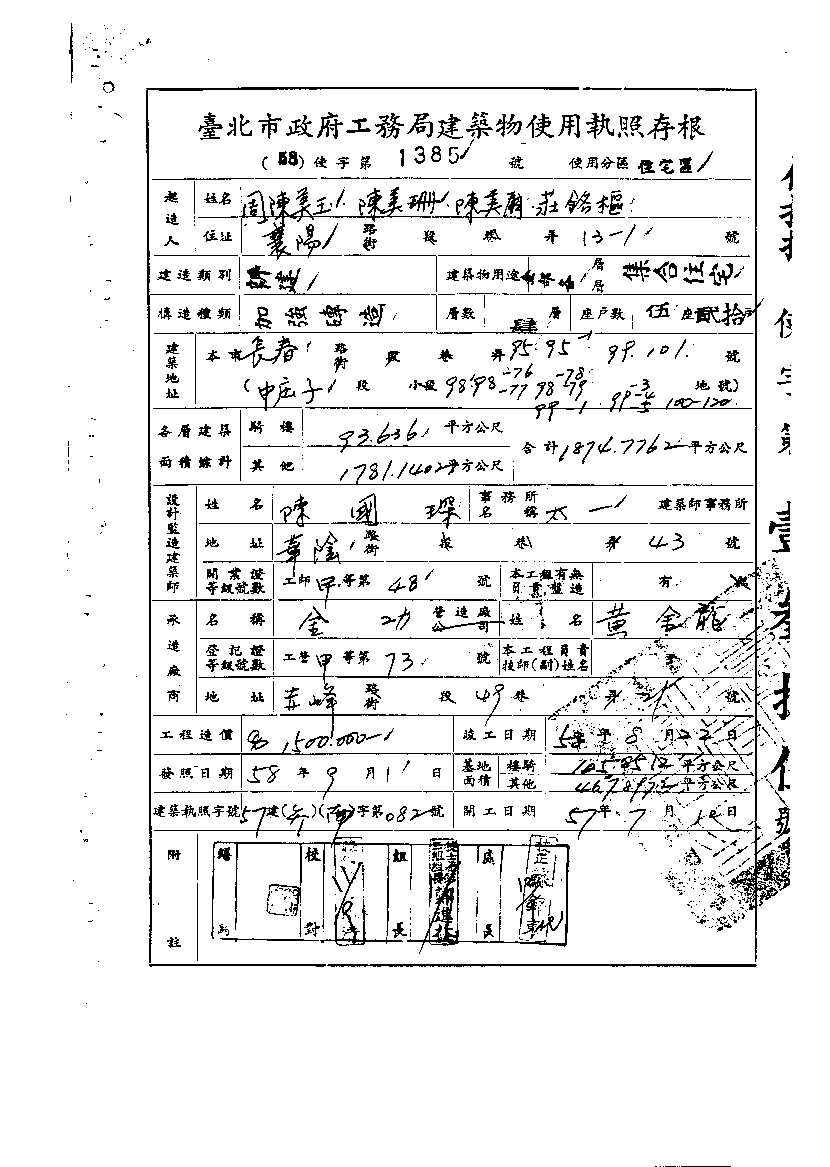 臺北市政府工務局建築物使用執照存根
(58)使字第 1385 號 使用分區 住宅區
起造人 姓名 周陳美玉 陳美珊 陳美 莊銘樞
住址 襄陽 路街 段 巷 弄 13-1 號
建造類別 建 建築物用途 層層 集合住宅
構造種類 加強磚造 層數 肆 層 座戶數 伍座貳拾戶
建築地址 本市 長春 路街 段 巷 弄 95.95-1 99.101. 號
(中庄子 段 小段 98 98-76 -77 98-78 -79 99-1 99-3 -4 -5 100-120 地號)
各層建築面積總計 騎樓 93.636 平方公尺 合計 1874.7762 平方公尺
其他 1781.1402 平方公尺
設計監造建築師 姓名 陳國琛 事務所名稱 太一 建築師事務所
地址 華陰 路街 段 巷 弄 43 號
開業證等級號數 工師 甲 等第 48 號 本工程有無負責監造 有
承造廠商 名稱 金功 營造廠公司 姓名 黃金龍
登記證等級號數 工營 甲 等第 73 號 本工程負責技師(副)姓名
地址 赤峰 路街 段 49 巷 弄 號
工程造價 1,500.000- 竣工日期 58 年 8 月 22 日
發照日期 58 年 9 月 11 日 基地面積 樓騎 平方公尺
其他 平方公尺
建築執照字號 57 建( )( )字第 082 號 開工日期 57 年 7 月 12 日
附註 校對 組長 處長